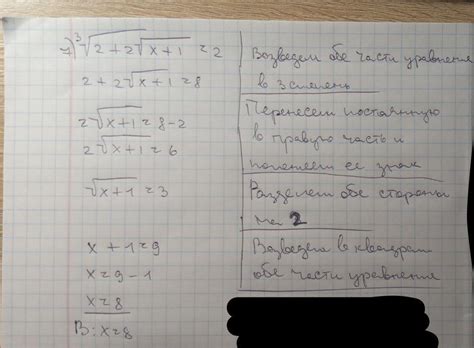 7) ∛(2 + 2√(x+1)) = 2
2 + 2√(x+1) = 8
2√(x+1) = 8 - 2
2√(x+1) = 6
√(x+1) = 3
x + 1 = 9
x = 9 - 1
x = 8
В: x = 8
Возведем обе части уравнения
в 3 степень
Перенесем постоянную
в правую часть и
поменяем ее знак
Разделем обе стороны
на 2
Возведем в квадрат
обе части уравнения